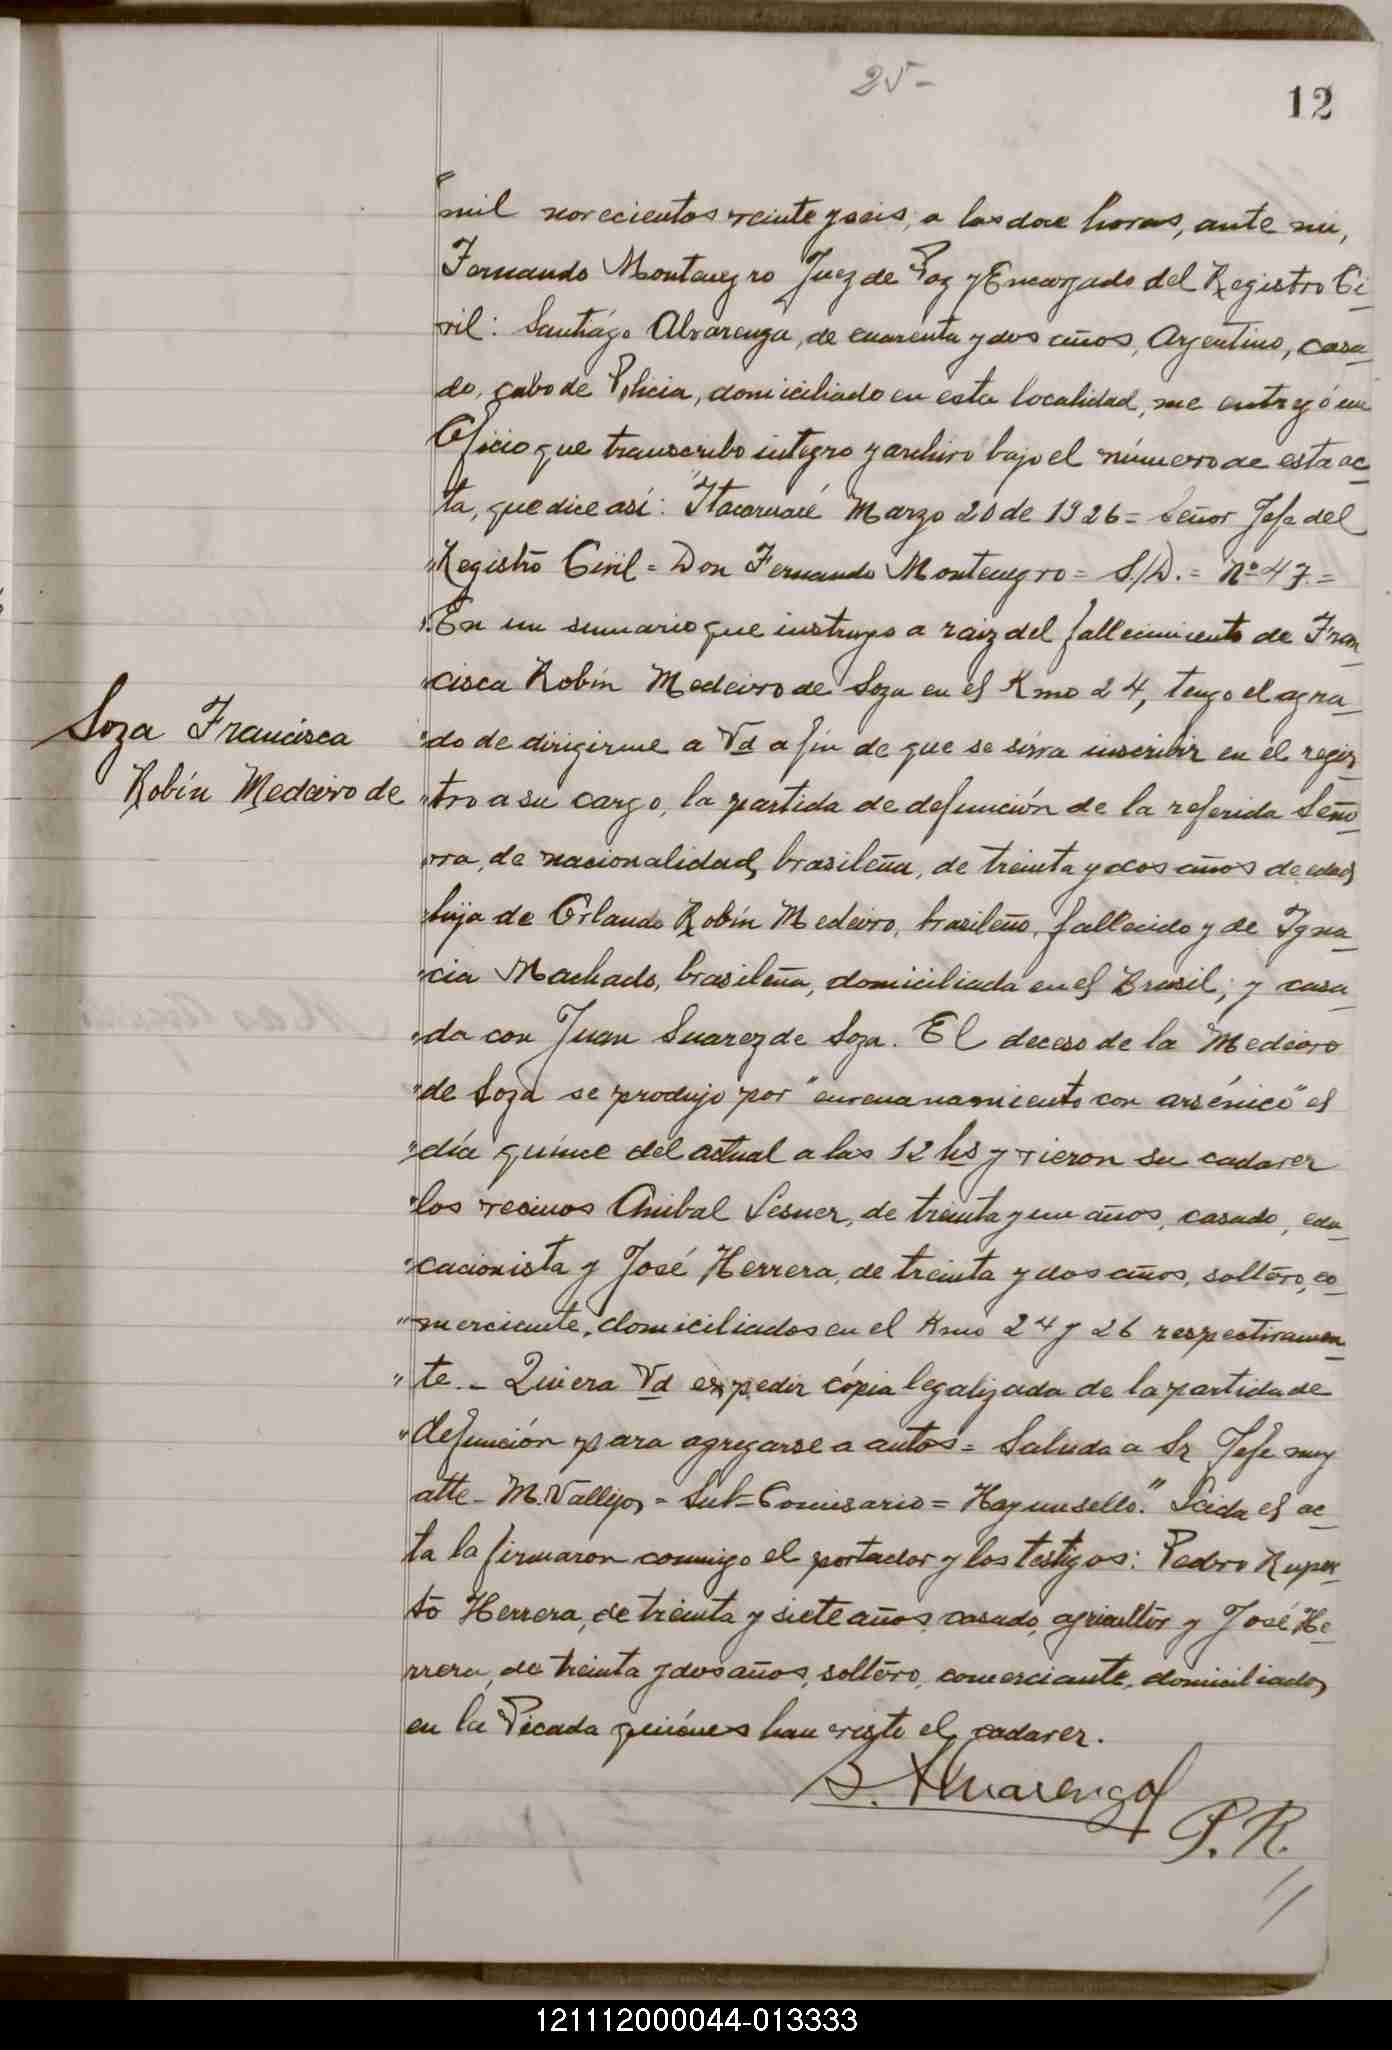 25-
12
mil novecientos veinte y seis, a las doce horas, ante mi,
Fernando Montenegro Juez de Paz y Encargado del Registro Ci-
vil: Santiago Alvarenga, de cuarenta y dos años, Argentino, casa-
do, cabo de Policia, domiciliado en esta localidad, me entregó un
Oficio que transcribo integro y archivo bajo el número de esta ac-
ta, que dice así: "Itacaruaré Marzo 20 de 1926 = Señor Jefe del
"Registro Civil = Don Fernando Montenegro = S./D. = Nº 47 =
"En un sumario que instruyo a raiz del fallecimiento de Fran-
"cisca Robín Medeiro de Soza en el Kmo 24, tengo el agra-
"do de dirigirme a Vd a fin de que se sirva inscribir en el regis-
"tro a su cargo, la partida de defunción de la referida Seño-
"ra, de nacionalidad brasileña, de treinta y dos años de edad,
"hija de Orlando Robín Medeiro, brasileño, fallecido y de Igna-
"cia Machado, brasileña, domiciliada en el Brasil; y casa-
"da con Juan Suarez de Soza. El deceso de la Medeiro
"de Soza se produjo por "envenanamiento con arsénico" el
"día quince del actual a las 12 hs y vieron su cadaver
"los vecinos Anibal Lesner, de treinta y un años, casado, edu-
"cacionista y José Herrera, de treinta y dos años, soltero, co-
"merciante, domiciliados en el Kmo 24 y 26 respectivamen-
"te.- Quiera Vd expedir cópia legalizada de la partida de
"defunción para agregarse a autos = Saluda a Sr Jefe muy
atte - M. Vallejos = Sub=Comisario = Hay un sello." Leida el ac-
ta la firmaron conmigo el portador y los testigos: Pedro Ruper-
to Herrera, de treinta y siete años, casado, agricultor y José He-
rrera, de treinta y dos años, soltero, comerciante, domiciliados
en la Picada quiénes han visto el cadaver.
S. Alvarenga
P. R.
//
Soza Francisca
Robín Medeiro de
121112000044-013333